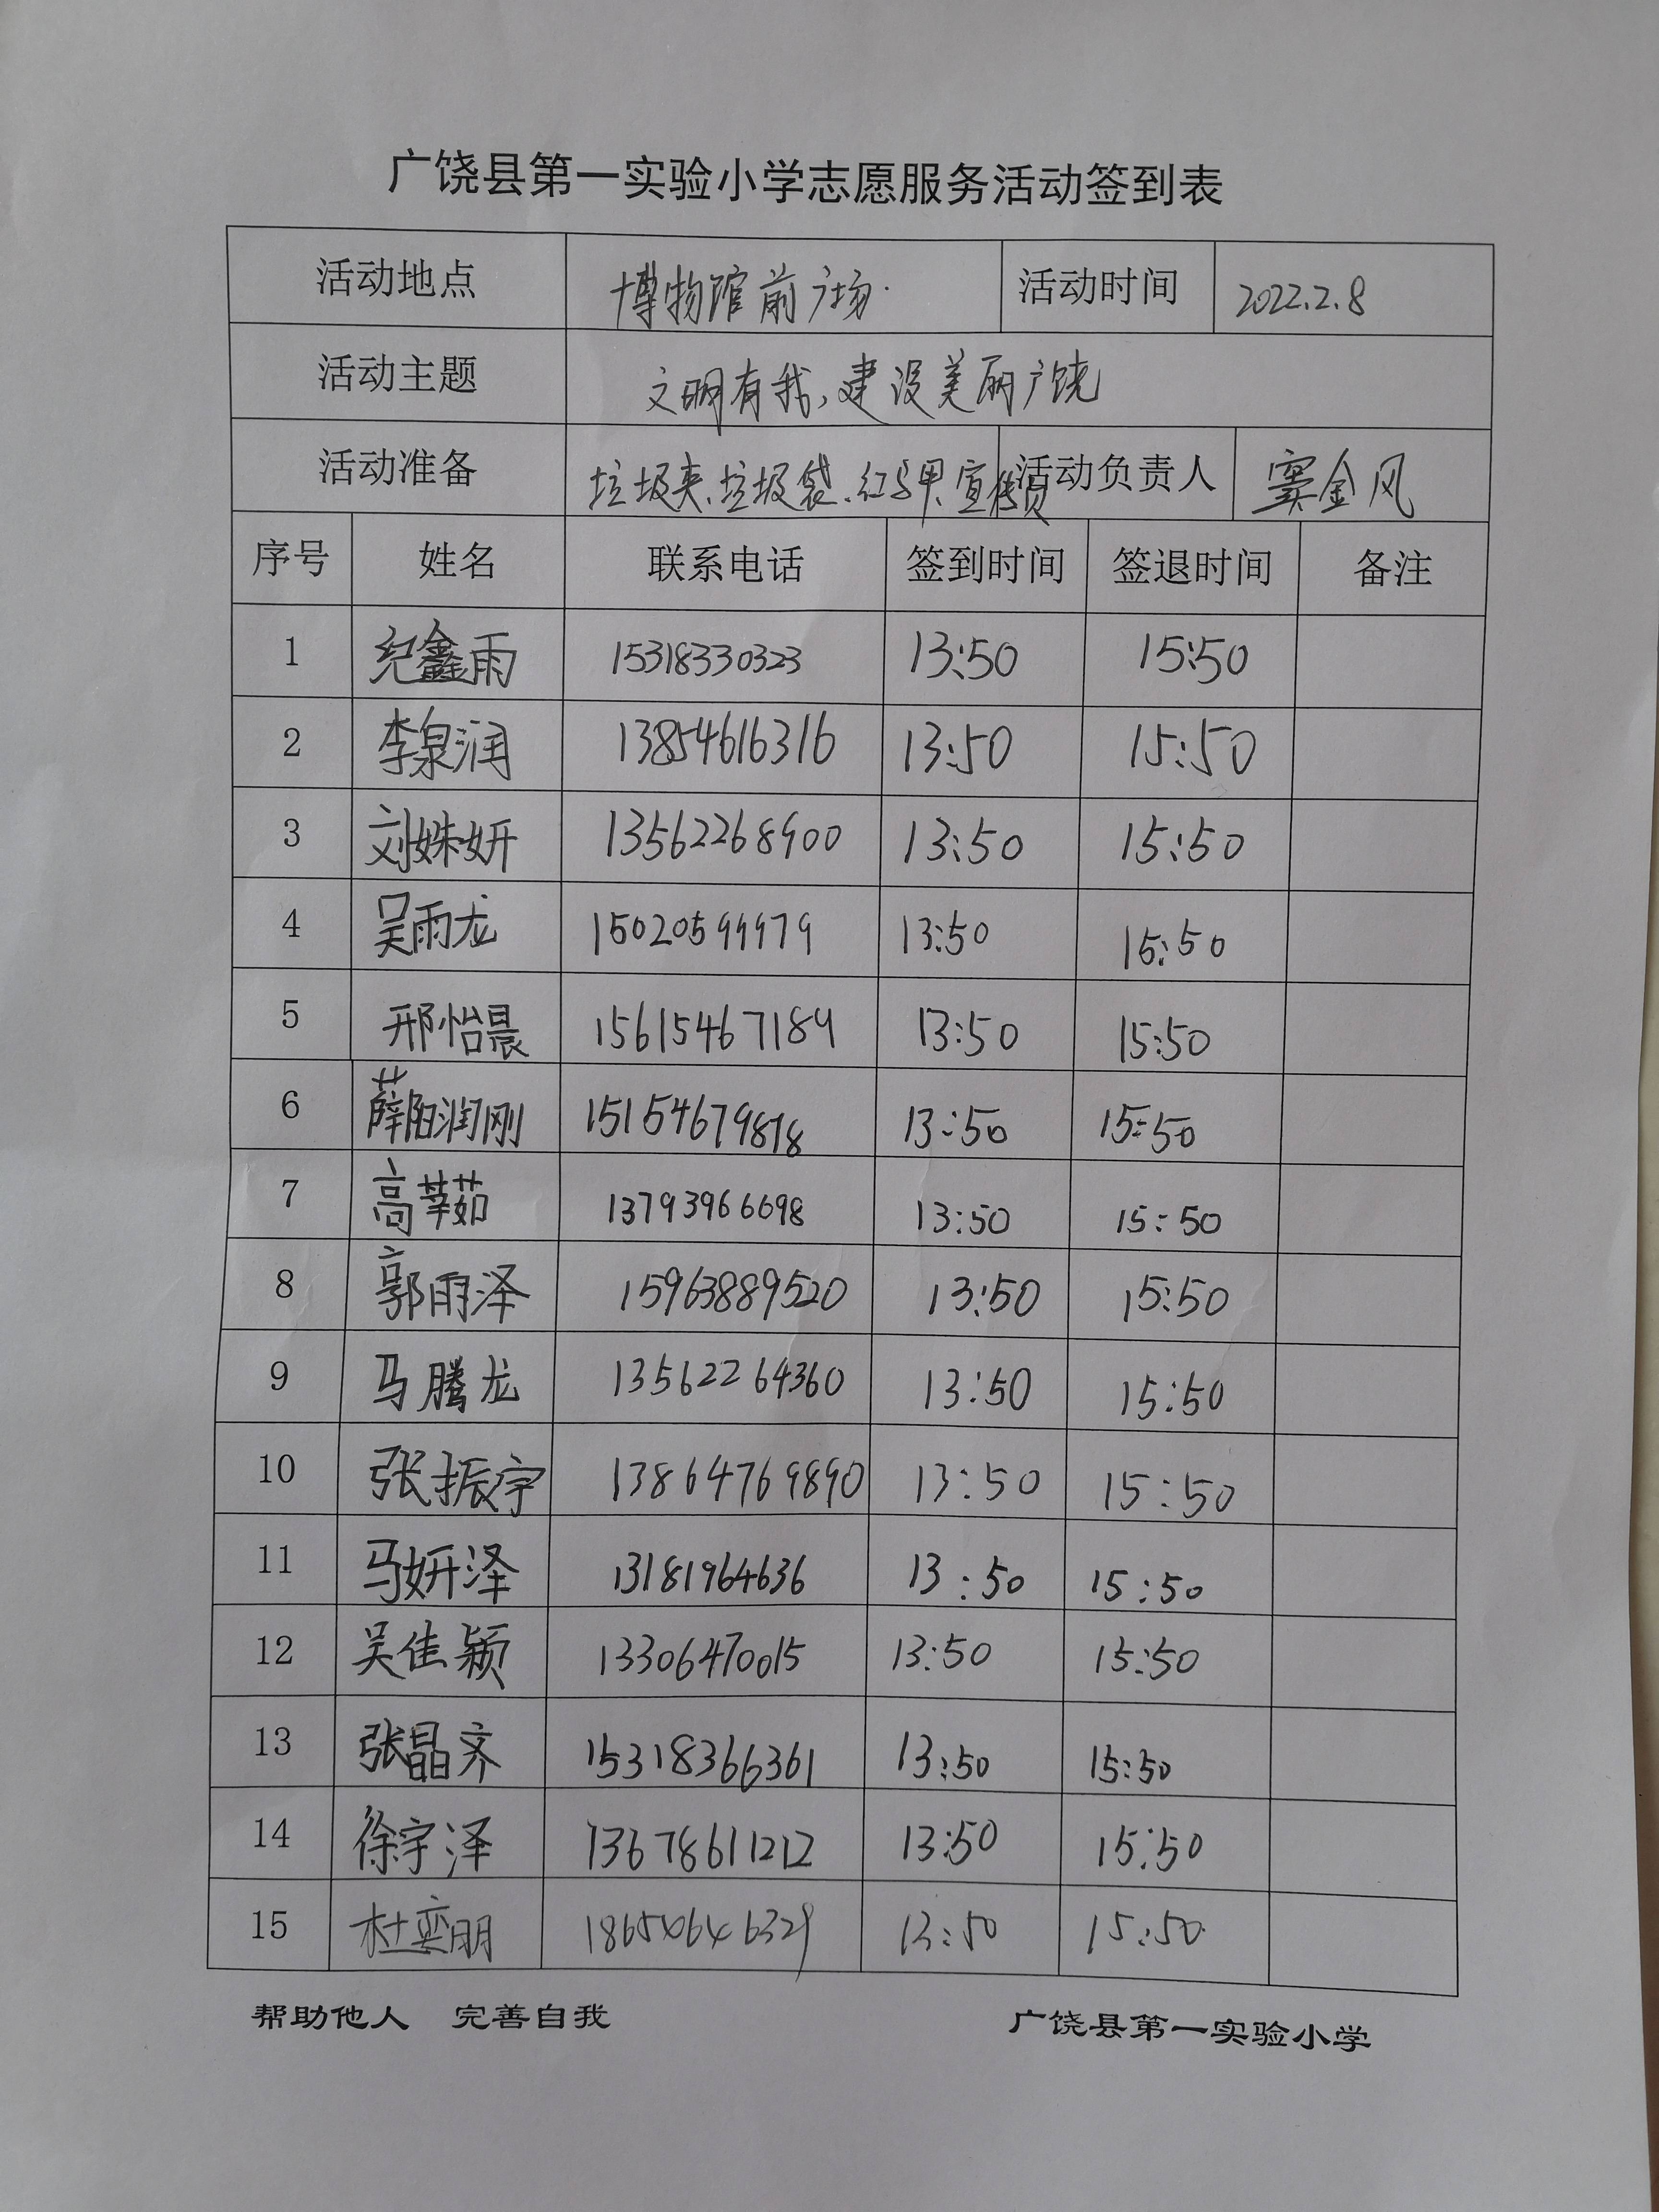 广饶县第一实验小学志愿服务活动签到表
活动地点 博物馆前广场. 活动时间 2022.2.8
活动主题 文明有我,建设美丽广饶
活动准备 垃圾夹、垃圾袋、红马甲、宣传页 活动负责人 窦金风
序号 姓名 联系电话 签到时间 签退时间 备注
1 纪鑫雨 15318330323 13:50 15:50
2 李泉润 13854616316 13:50 15:50
3 刘姝妍 13562268900 13:50 15:50
4 吴雨龙 15020599979 13:50 15:50
5 邢怡晨 15615467189 13:50 15:50
6 薛阳润刚 15154679878 13:50 15:50
7 高莘茹 13793966698 13:50 15:50
8 郭雨泽 15963889520 13:50 15:50
9 马腾龙 13562264360 13:50 15:50
10 张振宇 13864769890 13:50 15:50
11 马妍泽 13181964636 13:50 15:50
12 吴佳颖 13306470015 13:50 15:50
13 张晶齐 15318366361 13:50 15:50
14 徐宇泽 13678611212 13:50 15:50
15 杜奕明 13:50 15:50
帮助他人 完善自我 广饶县第一实验小学